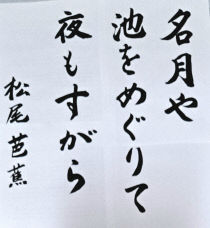 名月や
池をめぐりて
夜もすがら
松尾芭蕉